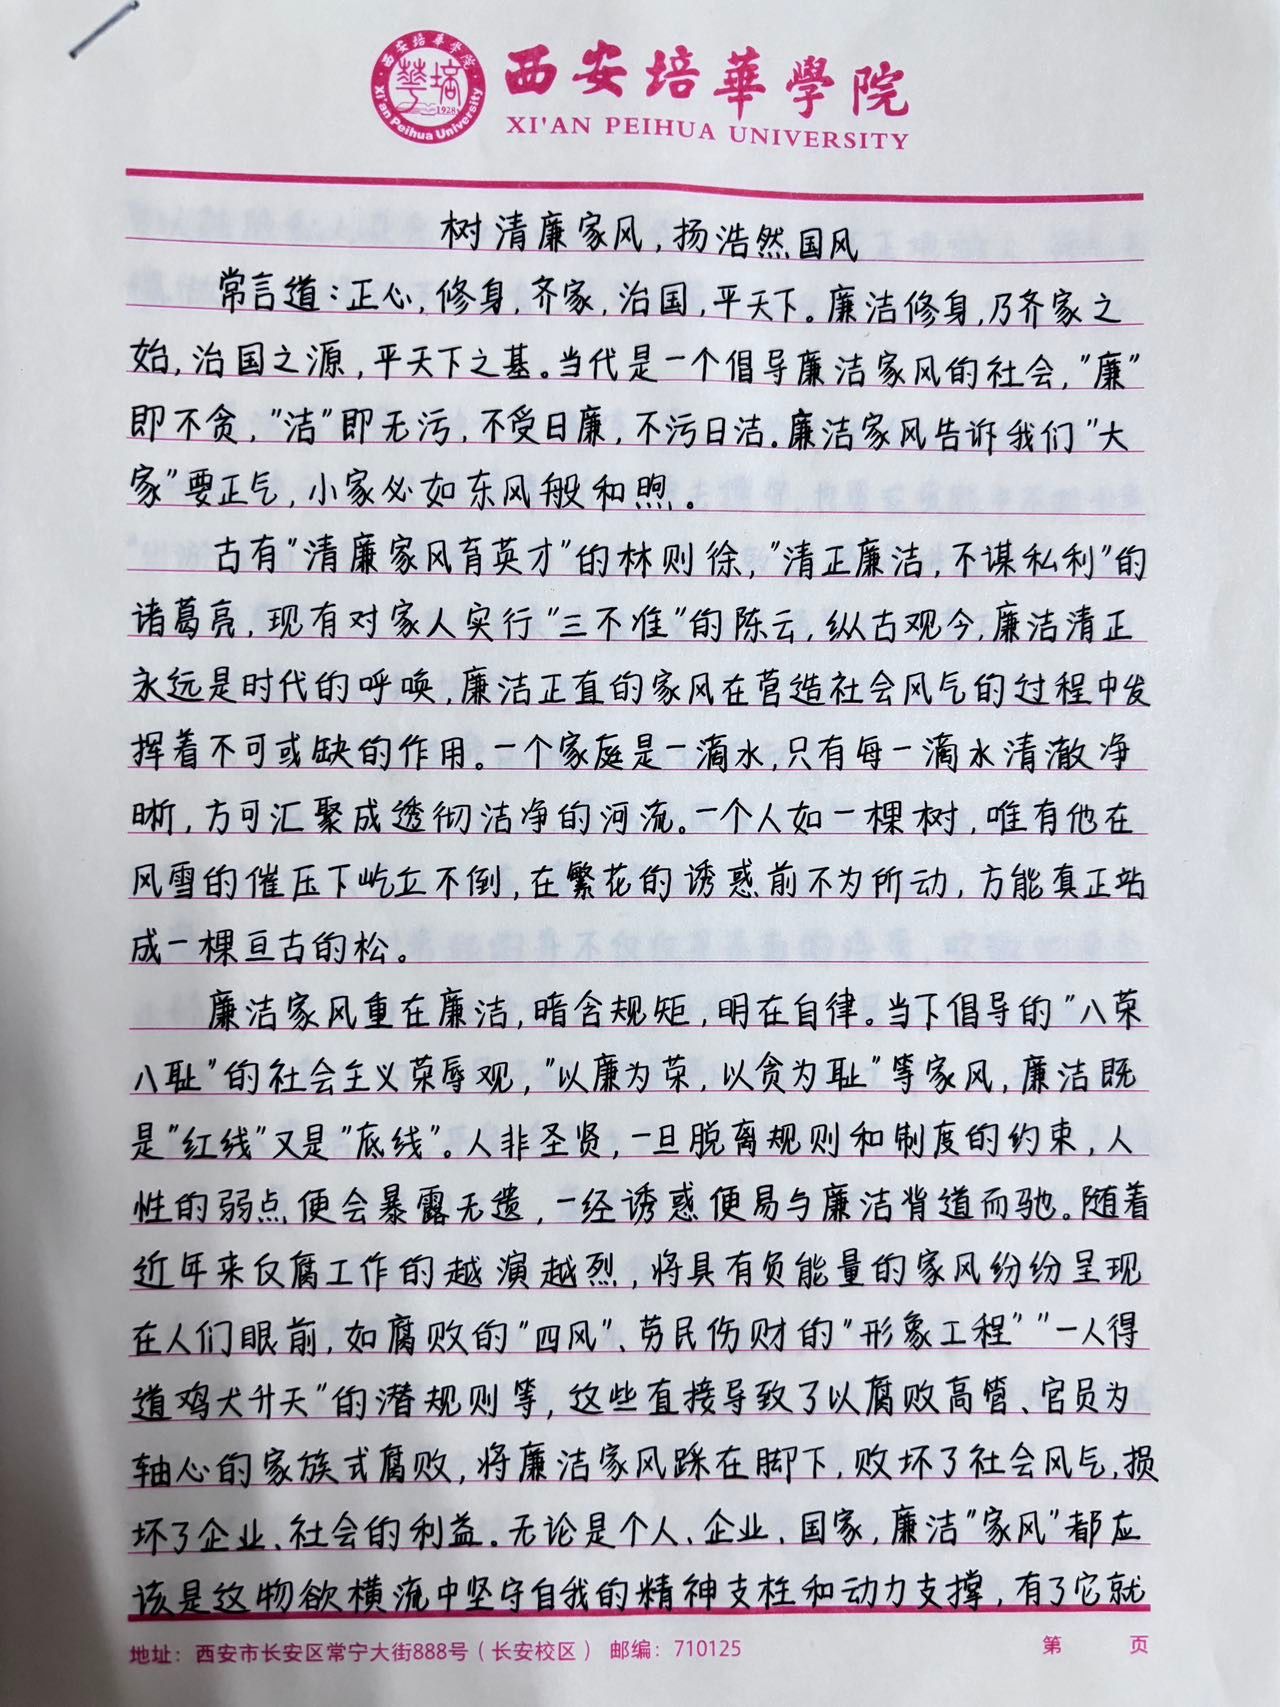 西安培華學院
XI'AN PEIHUA UNIVERSITY
西安培華学院
華培
1928
Xi'an Peihua University
树清廉家风,扬浩然国风
常言道:正心,修身,齐家,治国,平天下。廉洁修身,乃齐家之
始,治国之源,平天下之基。当代是一个倡导廉洁家风的社会,"廉"
即不贪,"洁"即无污,不受曰廉,不污曰洁。廉洁家风告诉我们"大
家"要正气,小家必如东风般和煦。
古有"清廉家风育英才"的林则徐,"清正廉洁,不谋私利"的
诸葛亮,现有对家人实行"三不准"的陈云,纵古观今,廉洁清正
永远是时代的呼唤,廉洁正直的家风在营造社会风气的过程中发
挥着不可或缺的作用。一个家庭是一滴水,只有每一滴水清澈净
晰,方可汇聚成透彻洁净的河流。一个人如一棵树,唯有他在
风雪的催压下屹立不倒,在繁花的诱惑前不为所动,方能真正站
成一棵亘古的松。
廉洁家风重在廉洁,暗含规矩,明在自律。当下倡导的"八荣
八耻"的社会主义荣辱观,"以廉为荣,以贪为耻"等家风,廉洁既
是"红线"又是"底线"。人非圣贤,一旦脱离规则和制度的约束,人
性的弱点便会暴露无遗,一经诱惑便易与廉洁背道而驰。随着
近年来反腐工作的越演越烈,将具有负能量的家风纷纷呈现
在人们眼前,如腐败的"四风"、劳民伤财的"形象工程""一人得
道鸡犬升天"的潜规则等,这些直接导致了以腐败高管、官员为
轴心的家族式腐败,将廉洁家风踩在脚下,败坏了社会风气,损
坏了企业、社会的利益。无论是个人、企业、国家,廉洁"家风"都应
该是这物欲横流中坚守自我的精神支柱和动力支撑,有了它就
地址:西安市长安区常宁大街888号(长安校区) 邮编:710125 第 页